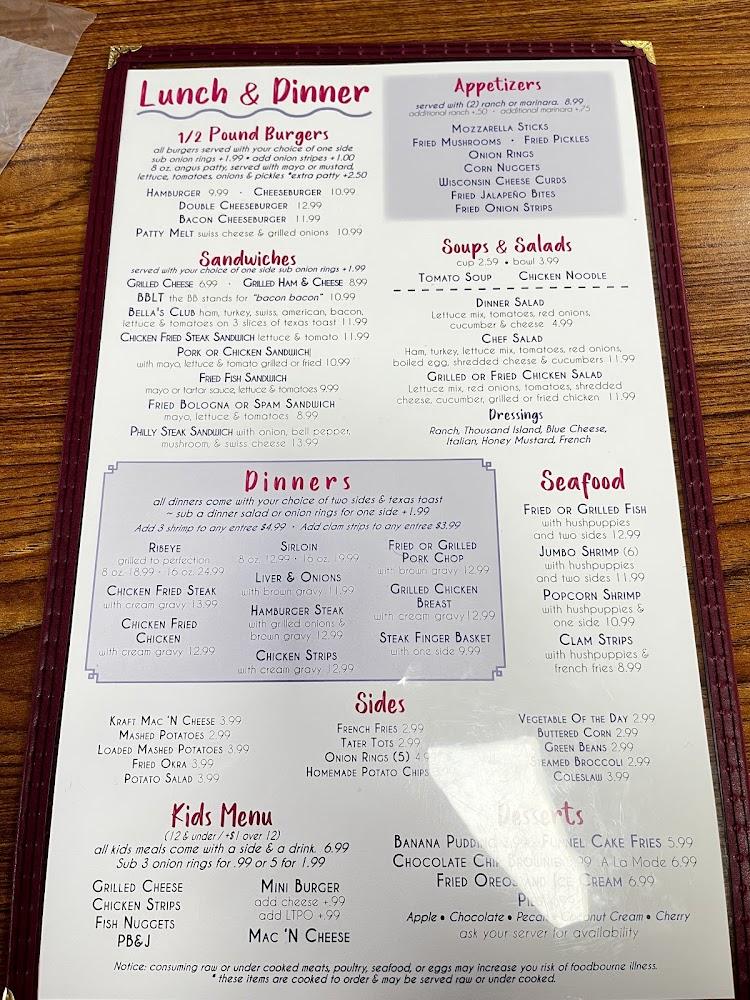 Lunch & Dinner
1/2 Pound Burgers
all burgers served with your choice of one side
sub onion rings +1.99 • add onion stripes +1.00
8 oz. angus patty, served with mayo or mustard,
lettuce, tomatoes, onions & pickles *extra patty +2.50
Hamburger 9.99 · Cheeseburger 10.99
Double Cheeseburger 12.99
Bacon Cheeseburger 11.99
Patty Melt swiss cheese & grilled onions 10.99
Sandwiches
served with your choice of one side sub onion rings +1.99
Grilled Cheese 6.99 · Grilled Ham & Cheese 8.99
BBLT the BB stands for "bacon bacon" 10.99
Bella's Club ham, turkey, swiss, american, bacon,
lettuce & tomatoes on 3 slices of texas toast 11.99
Chicken Fried Steak Sandwich lettuce & tomato 11.99
Pork or Chicken Sandwich|
with mayo, lettuce & tomato grilled or fried 10.99
Fried Fish Sandwich
mayo or tartar sauce, lettuce & tomatoes 9.99
Fried Bologna or Spam Sandwich
mayo, lettuce & tomatoes 8.99
Philly Steak Sandwich with onion, bell pepper,
mushroom, & swiss cheese 13.99
Appetizers
served with (2) ranch or marinara. 8.99
additional ranch +.50 · additional marinara +.75
Mozzarella Sticks
Fried Mushrooms · Fried Pickles
Onion Rings
Corn Nuggets
Wisconsin Cheese Curds
Fried Jalapeño Bites
Fried Onion Strips
Soups & Salads
cup 2.59 • bowl 3.99
Tomato Soup Chicken Noodle
Dinner Salad
Lettuce mix, tomatoes, red onions,
cucumber & cheese 4.99
Chef Salad
Ham, turkey, lettuce mix, tomatoes, red onions,
boiled egg, shredded cheese & cucumbers 11.99
Grilled or Fried Chicken Salad
Lettuce mix, red onions, tomatoes, shredded
cheese, cucumber, grilled or fried chicken 11.99
Dressings
Ranch, Thousand Island, Blue Cheese,
Italian, Honey Mustard, French
Dinners
all dinners come with your choice of two sides & texas toast
~ sub a dinner salad or onion rings for one side +1.99
Add 3 shrimp to any entree $4.99 · Add clam strips to any entree $3.99
Ribeye
grilled to perfection
8 oz. 18.99 • 16 oz. 24.99
Chicken Fried Steak
with cream gravy 13.99
Chicken Fried
Chicken
with cream gravy 12.99
Sirloin
8 oz. 12.99 • 16 oz. 19.99
Liver & Onions
with brown gravy 11.99
Hamburger Steak
with grilled onions &
brown gravy 12.99
Chicken Strips
with cream gravy 12.99
Fried or Grilled
Pork Chop
with brown gravy 12.99
Grilled Chicken
Breast
with cream gravy 12.99
Steak Finger Basket
with one side 9.99
Seafood
Fried or Grilled Fish
with hushpuppies
and two sides 12.99
Jumbo Shrimp (6)
with hushpuppies
and two sides 11.99
Popcorn Shrimp
with hushpuppies &
one side 10.99
Clam Strips
with hushpuppies &
french fries 8.99
Sides
Kraft Mac 'N Cheese 3.99
Mashed Potatoes 2.99
Loaded Mashed Potatoes 3.99
Fried Okra 3.99
Potato Salad 3.99
French Fries 2.99
Tater Tots 2.99
Onion Rings (5)
Homemade Potato Chips
Vegetable Of the Day 2.99
Buttered Corn 2.99
Green Beans 2.99
Steamed Broccoli 2.99
Coleslaw 3.99
Kids Menu
(12 & under / +$1 over 12)
all kids meals come with a side & a drink. 6.99
Sub 3 onion rings for .99 or 5 for 1.99
Grilled Cheese
Chicken Strips
Fish Nuggets
PB&J
Mini Burger
add cheese +.99
add LTPO +.99
Mac 'N Cheese
Desserts
Banana Pudding Funnel Cake Fries 5.99
Chocolate Chip Brownie A La Mode 6.99
Fried Oreos and Ice Cream 6.99
Apple • Chocolate • Pecan • Coconut Cream • Cherry
ask your server for availability
Notice: consuming raw or under cooked meats, poultry, seafood, or eggs may increase you risk of foodbourne illness.
* these items are cooked to order & may be served raw or under cooked.